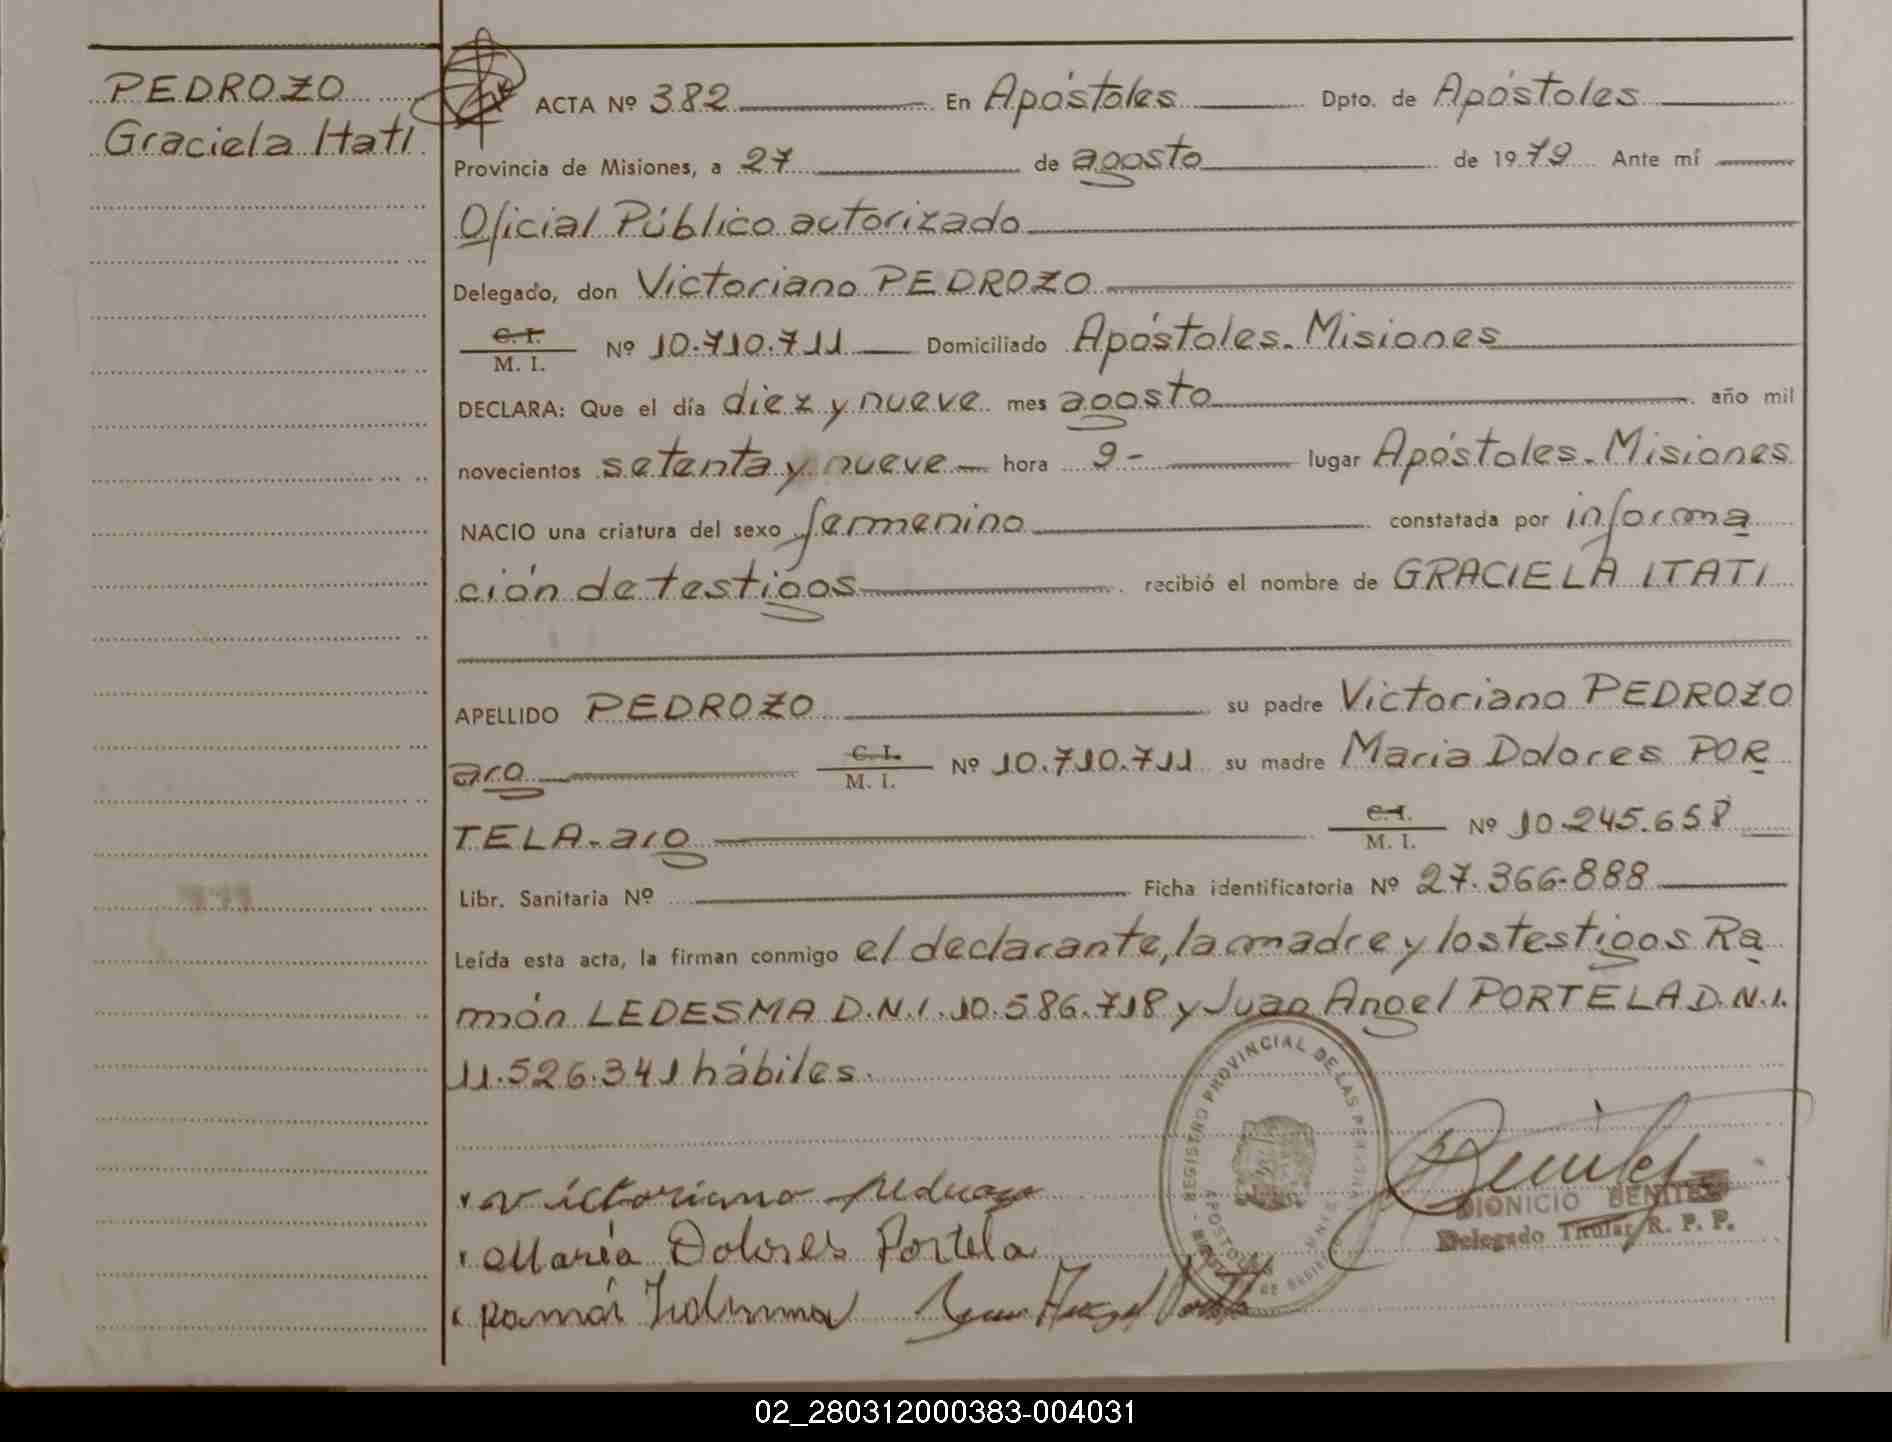 PEDROZO
Graciela Itatí
ACTA Nº 382 En Apóstoles Dpto. de Apóstoles
Provincia de Misiones, a 27 de agosto de 1979 Ante mí
Oficial Público autorizado
Delegado, don Victoriano PEDROZO
C. I.
M. I. Nº 10.710.711 Domiciliado Apóstoles. Misiones
DECLARA: Que el día diez y nueve mes agosto año mil
novecientos setenta y nueve hora 9- lugar Apóstoles. Misiones
NACIO una criatura del sexo femenino constatada por informa
ción de testigos recibió el nombre de GRACIELA ITATI
APELLIDO PEDROZO su padre Victoriano PEDROZO
arg C. I.
M. I. Nº 10.710.711 su madre Maria Dolores POR
TELA-arg C. I.
M. I. Nº 10.245.658
Libr. Sanitaria Nº Ficha identificatoria Nº 27.366.888
Leída esta acta, la firman conmigo el declarante, la madre y los testigos Ra
món LEDESMA D.N.I. 10.586.718 y Juan Angel PORTELA D.N.I.
11.526.341 hábiles.
REGISTRO PROVINCIAL DE LAS PERSONAS
APOSTOLES
Victoriano Pedrozo
María Dolores Portela
DIONICIO BENITEZ
Delegado Titular R. P. P.
Juan Angel Portela
02_280312000383-004031